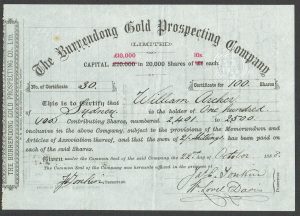 The Burrendong Gold Prospecting Company
(LIMITED)
£10,000 10s
CAPITAL £20,000 in 20,000 Shares of each
No. of Certificate 30. Certificate for 100. Shares
This is to Certify that William Archer
of Sydney is the holder of One hundred
(100) Contributing Shares, numbered 2401 to 2500
inclusive in the above Company, subject to the provisions of the Memorandum and
Articles of Association thereof, and that the sum of 2/- Shillings has been paid on
each of the said Shares.
Given under the Common Seal of the said Company, this 22 October
The Common Seal of the Company was hereunto affixed in the presence of
THE BURRENDONG GOLD PROSPECTING CO. LTD.